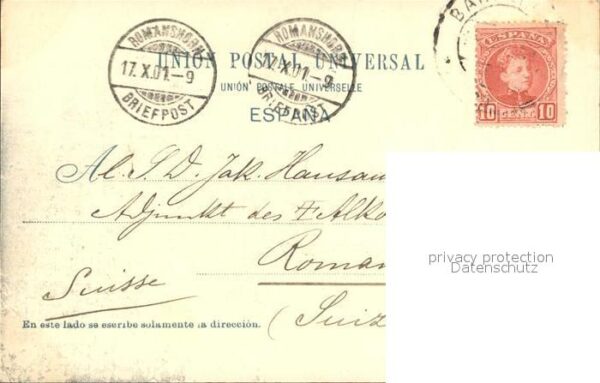 ROMANSHORN
17.X.01.-9
BRIEFPOST
ROMANSHORN
17.X.01.-9
BRIEFPOST
BAR
UNION POSTAL UNIVERSAL
UNION POSTALE UNIVERSELLE
ESPAÑA
ESPAÑA
10 CENT. 10
Al. S. D. Jak. Hansam
Adjunkt des
Roman
Suisse
(Suiz
En este lado se escribe solamente la dirección.
privacy protection
Datenschutz